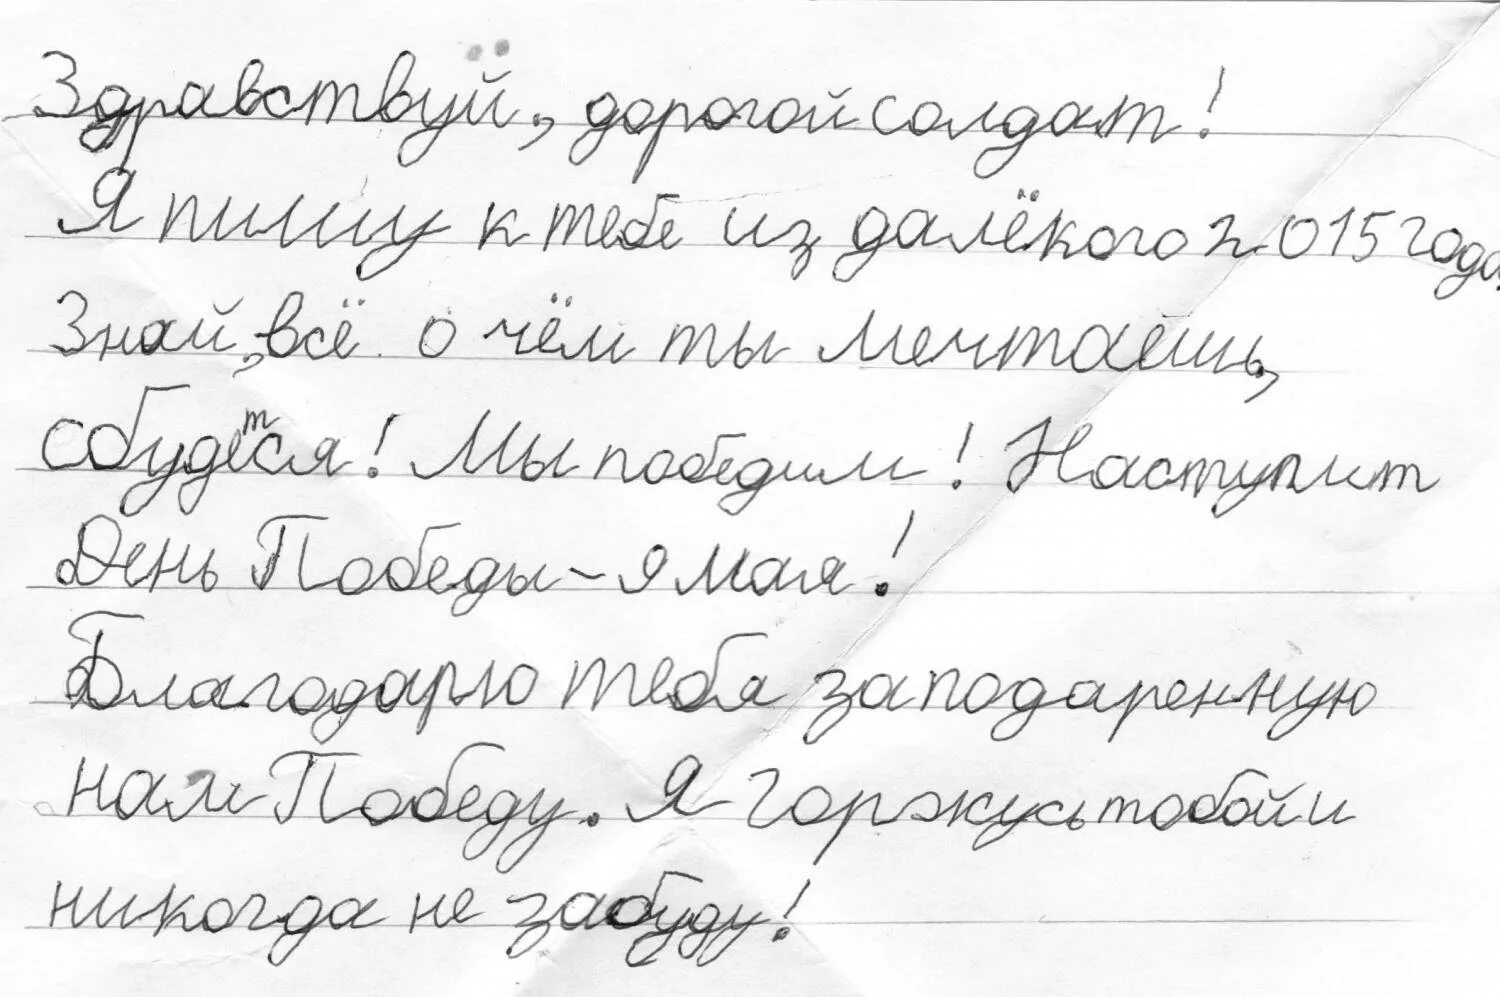 Здравствуй, дорогой солдат!
Я пишу к тебе из далёкого 2015 года.
Знай, всё о чём ты мечтаешь,
сбудется! Мы победим! Наступит
День Победы – 9 мая!
Благодарю тебя за подаренную
нам Победу. Я горжусь тобой и
никогда не забуду!